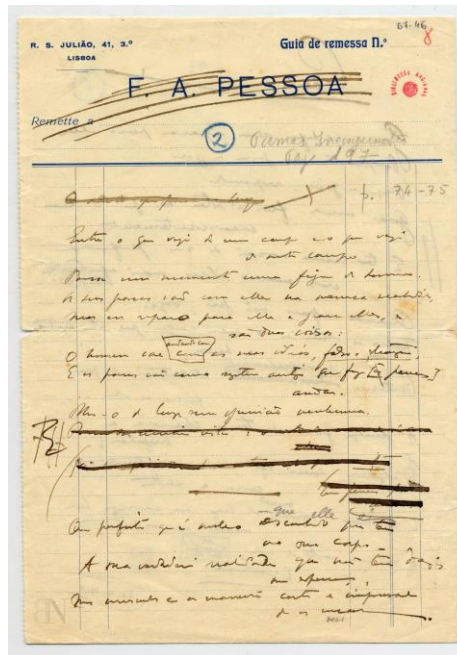 68-46
8
R. S. JULIÃO, 41, 3.º
LISBOA
Guia de remessa N.º
F. A. PESSOA
Remette a
2
Poemas Inconjunctos
p. 74-75
Entre o que vejo de um campo e o que vejo
de outro campo
Passa um momento uma figura de homem.
Os seus passos vão com elle na mesma realidade,
Mas eu reparo para elle e para elles, e
são duas coisas:
O homem vae andando com as suas idéas, falso e
E os passos vão com o systema antigo que faz pernas
andar.
Olho-o de longe sem opinião nenhuma.
que elle é
Que perfeito que é nelle o
o seu corpo
A sua verdadeira realidade que não tem desejos
nem esperanças,
Mas musculos e a maneira certa e impessoal
de os usar.